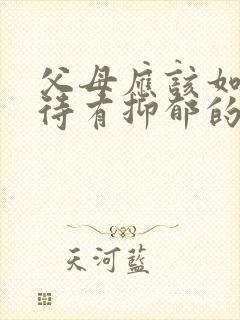 父母應該如
待有抑郁的
天河藍